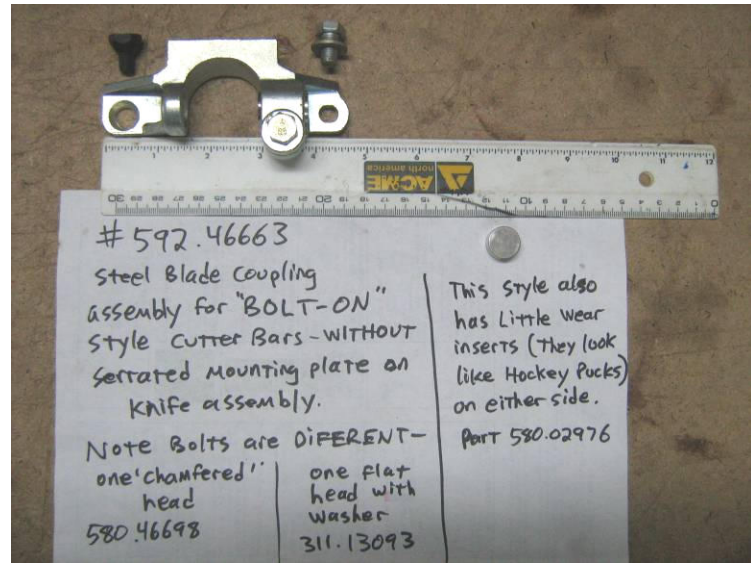 1 2 3 4 5 6 7 8 9 10 11 12
ACME
north america
30 29 28 27 26 25 24 23 22 21 20 19 18 17 16 15 14 13 12 11 10 9 8 7 6 5 4 3 2 1 0
#592.46663
Steel Blade Coupling
assembly for "BOLT-ON"
Style Cutter Bars - WITHOUT
Serrated Mounting plate on
Knife assembly.
Note Bolts are DiFERENT-
one 'chamfered"
head
580.46698
one flat
head with
washer
311.13093
This style also
has Little wear
inserts (They look
like Hockey Pucks)
on either side.
Part 580.02976